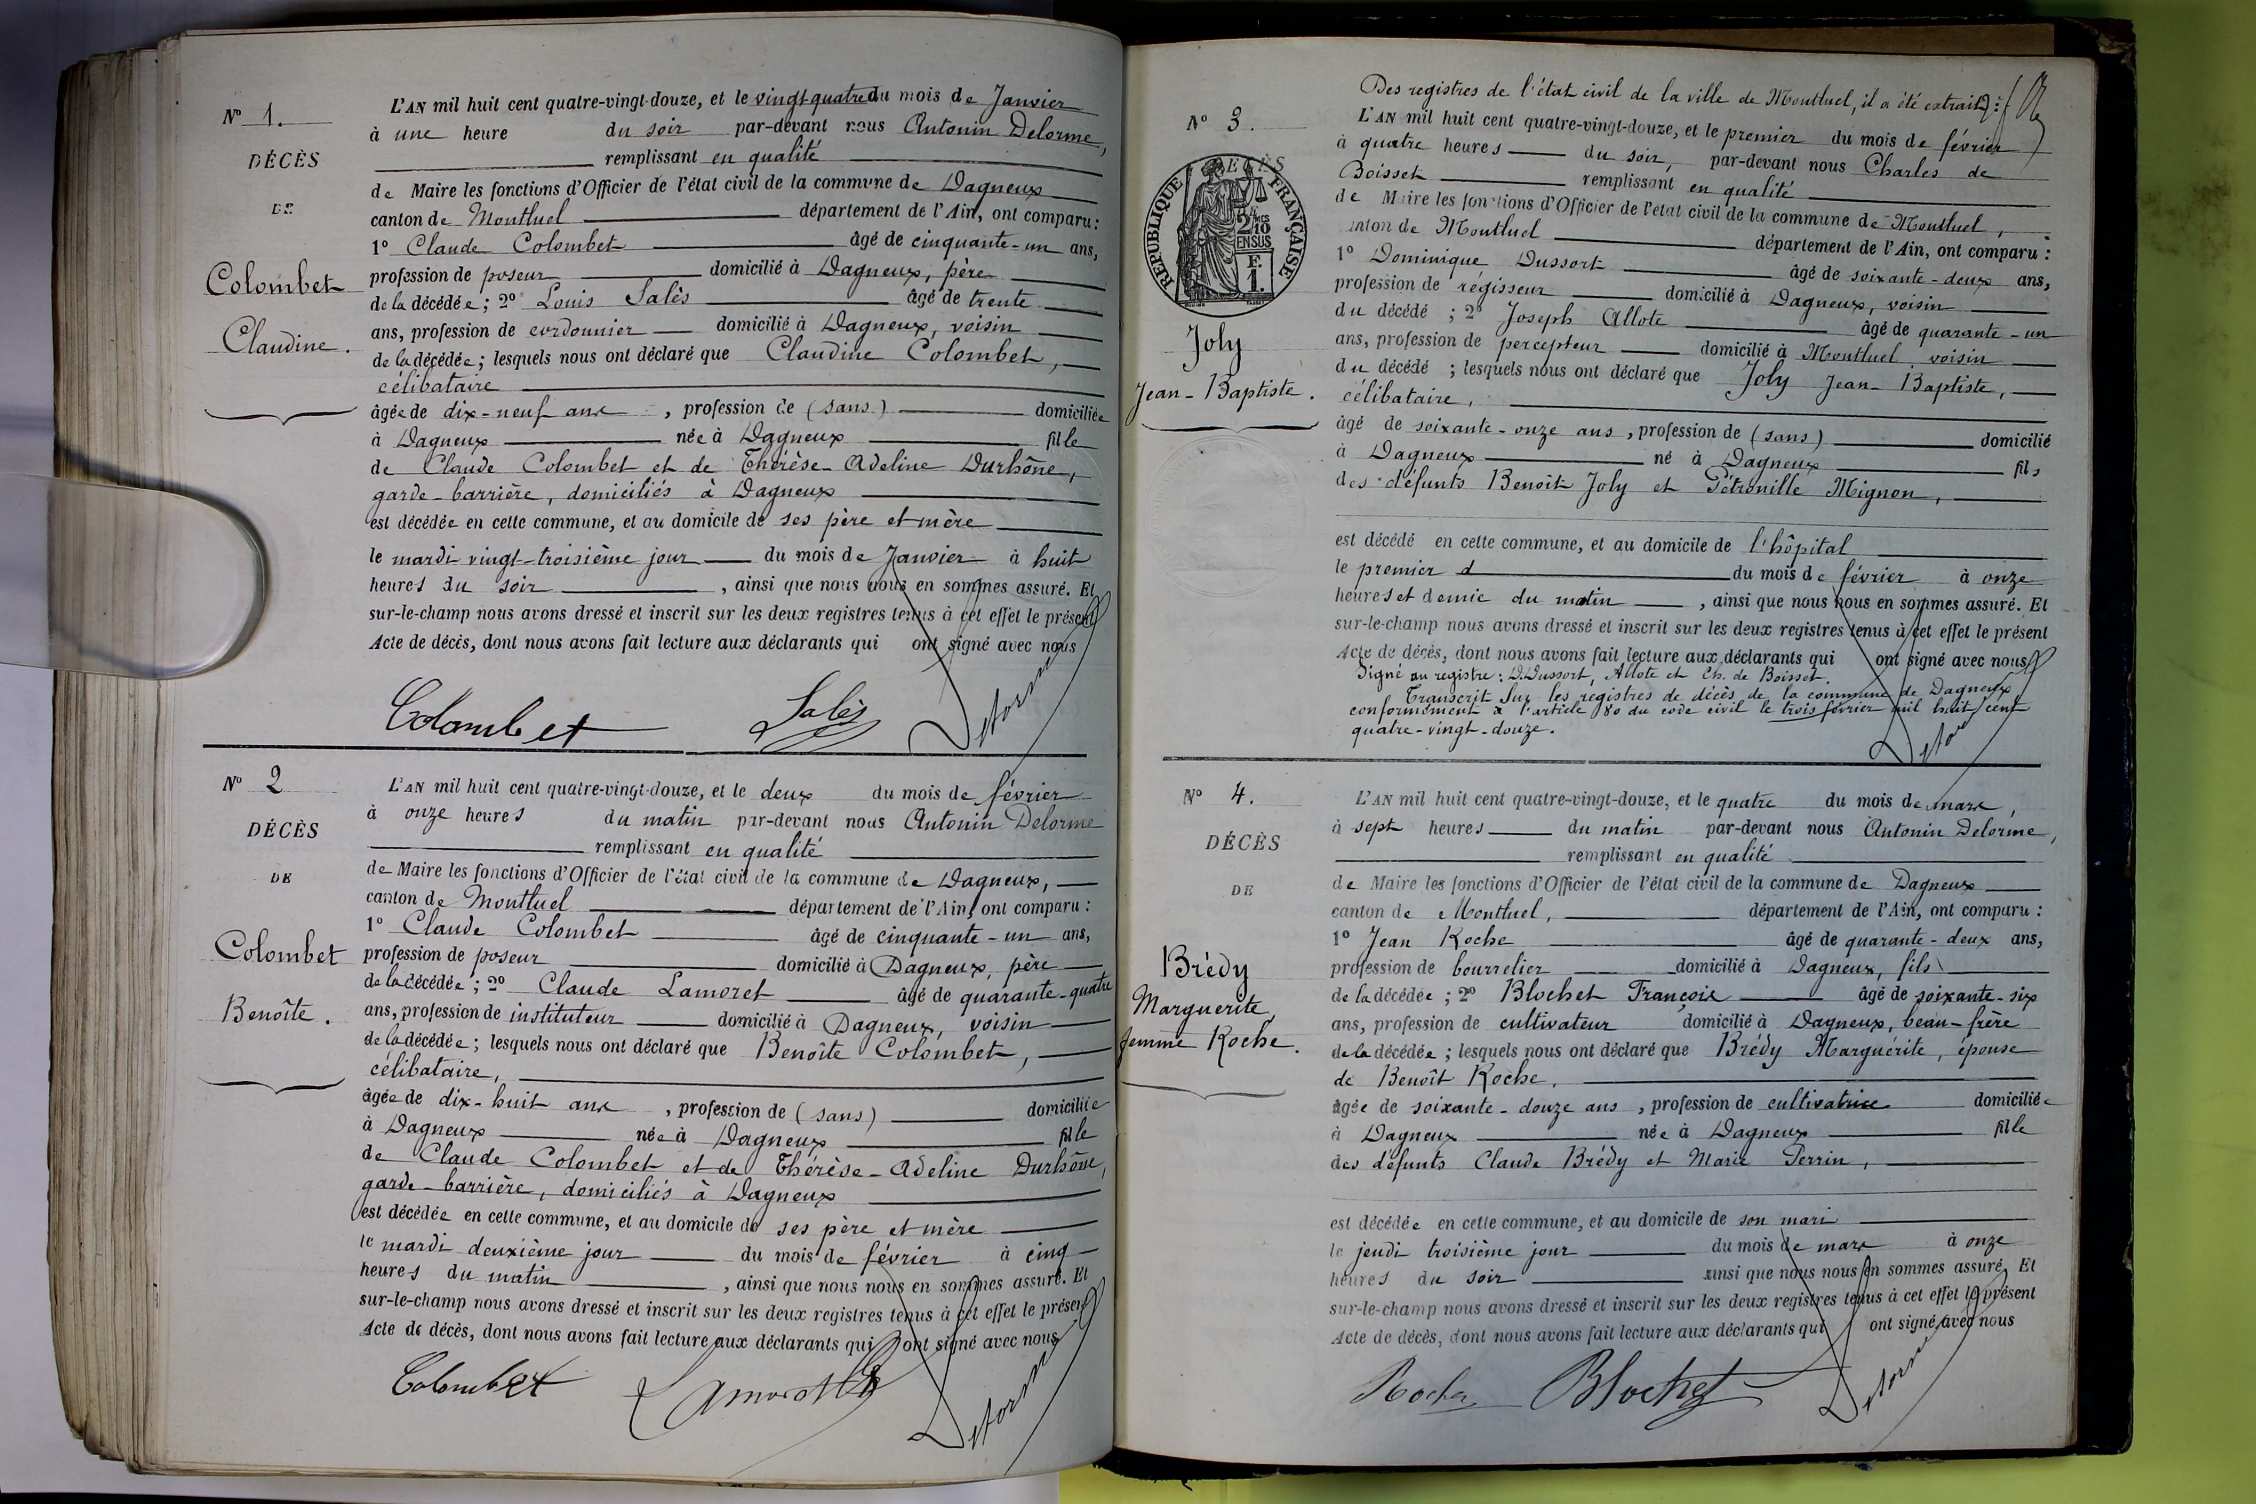 N° 1.
DÉCÈS
DE
Colombet
Claudine.
L'AN mil huit cent quatre-vingt-douze, et le vingt quatre du mois de Janvier
à une heure du soir par-devant nous Antonin Delorme,
remplissant en qualité
de Maire les fonctions d'Officier de l'état civil de la commune de Dagneux
canton de Montluel département de l'Ain, ont comparu :
1° Claude Colombet âgé de cinquante-un ans,
profession de poseur domicilié à Dagneux, père
de la décédée ; 2° Louis Salès âgé de trente
ans, profession de cordonnier domicilié à Dagneux, voisin
de la décédée ; lesquels nous ont déclaré que Claudine Colombet,
célibataire
âgée de dix-neuf ans, profession de (sans) domiciliée
à Dagneux née à Dagneux fille
de Claude Colombet et de Thérèse-Adeline Durhône,
garde-barrière, domiciliés à Dagneux
est décédée en cette commune, et au domicile de ses père et mère
le mardi vingt-troisième jour du mois de Janvier à huit
heures du soir, ainsi que nous nous en sommes assuré. Et
sur-le-champ nous avons dressé et inscrit sur les deux registres tenus à cet effet le présent
Acte de décès, dont nous avons fait lecture aux déclarants qui ont signé avec nous
Colombet Salès Delorme
N° 2
DÉCÈS
DE
Colombet
Benoîte.
L'AN mil huit cent quatre-vingt-douze, et le deux du mois de février
à onze heures du matin par-devant nous Antonin Delorme
remplissant en qualité
de Maire les fonctions d'Officier de l'état civil de la commune de Dagneux,
canton de Montluel département de l'Ain, ont comparu :
1° Claude Colombet âgé de cinquante-un ans,
profession de poseur domicilié à Dagneux, père
de la décédée ; 2° Claude Lamoret âgé de quarante-quatre
ans, profession de instituteur domicilié à Dagneux, voisin
de la décédée ; lesquels nous ont déclaré que Benoîte Colombet,
célibataire,
âgée de dix-huit ans, profession de (sans) domiciliée
à Dagneux née à Dagneux fille
de Claude Colombet et de Thérèse-Adeline Durhône,
garde-barrière, domiciliés à Dagneux
est décédée en cette commune, et au domicile de ses père et mère
le mardi deuxième jour du mois de février à cinq
heures du matin, ainsi que nous nous en sommes assuré. Et
sur-le-champ nous avons dressé et inscrit sur les deux registres tenus à cet effet le présent
Acte de décès, dont nous avons fait lecture aux déclarants qui ont signé avec nous
Colombet Lamoret Delorme
N° 3.
DÉCÈS
RÉPUBLIQUE FRANÇAISE
2 10es
EN SUS
F.
1.
Joly
Jean-Baptiste.
Des registres de l'état civil de la ville de Montluel, il a été extrait :
L'AN mil huit cent quatre-vingt-douze, et le premier du mois de février
à quatre heures du soir, par-devant nous Charles de
Boisset remplissant en qualité
de Maire les fonctions d'Officier de l'état civil de la commune de Montluel,
canton de Montluel département de l'Ain, ont comparu :
1° Dominique Dussort âgé de soixante-deux ans,
profession de régisseur domicilié à Dagneux, voisin
du décédé ; 2° Joseph Allote âgé de quarante-un
ans, profession de percepteur domicilié à Montluel voisin
du décédé ; lesquels nous ont déclaré que Joly Jean-Baptiste,
célibataire,
âgé de soixante-onze ans, profession de (sans) domicilié
à Dagneux né à Dagneux fils
des défunts Benoît Joly et Pétronille Mignon,
est décédé en cette commune, et au domicile de l'hôpital
le premier d du mois de février à onze
heures et demie du matin, ainsi que nous nous en sommes assuré. Et
sur-le-champ nous avons dressé et inscrit sur les deux registres tenus à cet effet le présent
Acte de décès, dont nous avons fait lecture aux déclarants qui ont signé avec nous
Signé au registre : D. Dussort, Allote et Ch. de Boisset.
Transcrit sur les registres de décès de la commune de Dagneux
conformément à l'article 80 du code civil le trois février mil huit cent
quatre-vingt-douze.
Delorme
N° 4.
DÉCÈS
DE
Brédy
Marguerite,
femme Roche.
L'AN mil huit cent quatre-vingt-douze, et le quatre du mois de mars,
à sept heures du matin par-devant nous Antonin Delorme,
remplissant en qualité
de Maire les fonctions d'Officier de l'état civil de la commune de Dagneux
canton de Montluel, département de l'Ain, ont comparu :
1° Jean Roche âgé de quarante-deux ans,
profession de bourrelier domicilié à Dagneux, fils
de la décédée ; 2° Blochet François âgé de soixante-six
ans, profession de cultivateur domicilié à Dagneux, beau-frère
de la décédée ; lesquels nous ont déclaré que Brédy Marguérite, épouse
de Benoît Roche,
âgée de soixante-douze ans, profession de cultivatrice domiciliée
à Dagneux née à Dagneux fille
des défunts Claude Brédy et Marie Perrin,
est décédée en cette commune, et au domicile de son mari
le jeudi troisième jour du mois de mars à onze
heures du soir ainsi que nous nous en sommes assuré. Et
sur-le-champ nous avons dressé et inscrit sur les deux registres tenus à cet effet le présent
Acte de décès, dont nous avons fait lecture aux déclarants qui ont signé avec nous
Roche Blochet Delorme